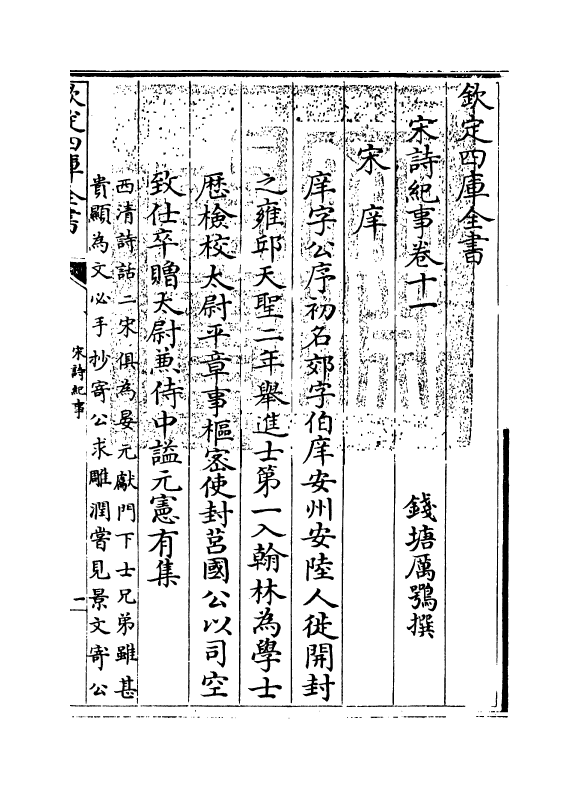 欽定四庫全書
宋詩紀事卷十一
錢塘厲鶚撰
宋庠
庠字公序初名郊字伯庠安州安陸人徙開封
之雍邱天聖二年舉進士第一入翰林為學士
歴檢校太尉平章事樞宻使封莒國公以司空
致仕卒贈太尉兼侍中諡元憲有集
西清詩話二宋俱為晏元獻門下士兄弟雖甚
貴顯為文必手抄寄公求雕潤嘗見景文寄公
欽定四庫全書
宋詩紀事
一